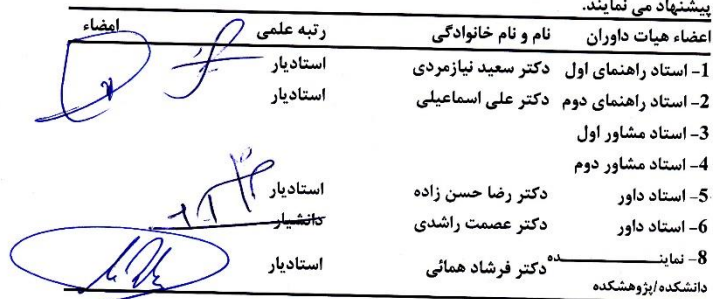 پیشنهاد می نمایند.
اعضاء هیات داوران نام و نام خانوادگی رتبه علمی امضاء
1- استاد راهنمای اول دکتر سعید نیازمردی استادیار
2- استاد راهنمای دوم دکتر علی اسماعیلی استادیار
3- استاد مشاور اول
4- استاد مشاور دوم
5- استاد داور دکتر رضا حسن زاده استادیار
6- استاد داور دکتر عصمت راشدی دانشیار
8- نماینــــــــده دکتر فرشاد همائی استادیار
دانشکده/پژوهشکده